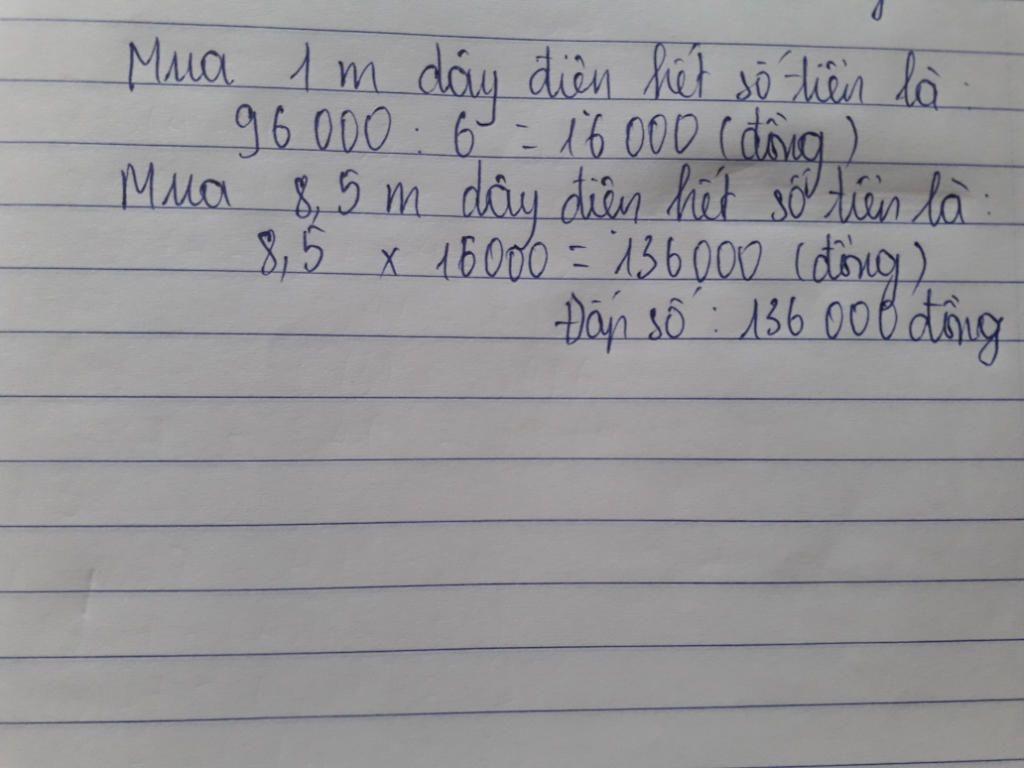 Mua 1 m dây điện hết số tiền là :
96 000 : 6 = 16 000 (đồng)
Mua 8,5 m dây điện hết số tiền là :
8,5 x 16000 = 136000 (đồng)
Đáp số : 136 000 đồng